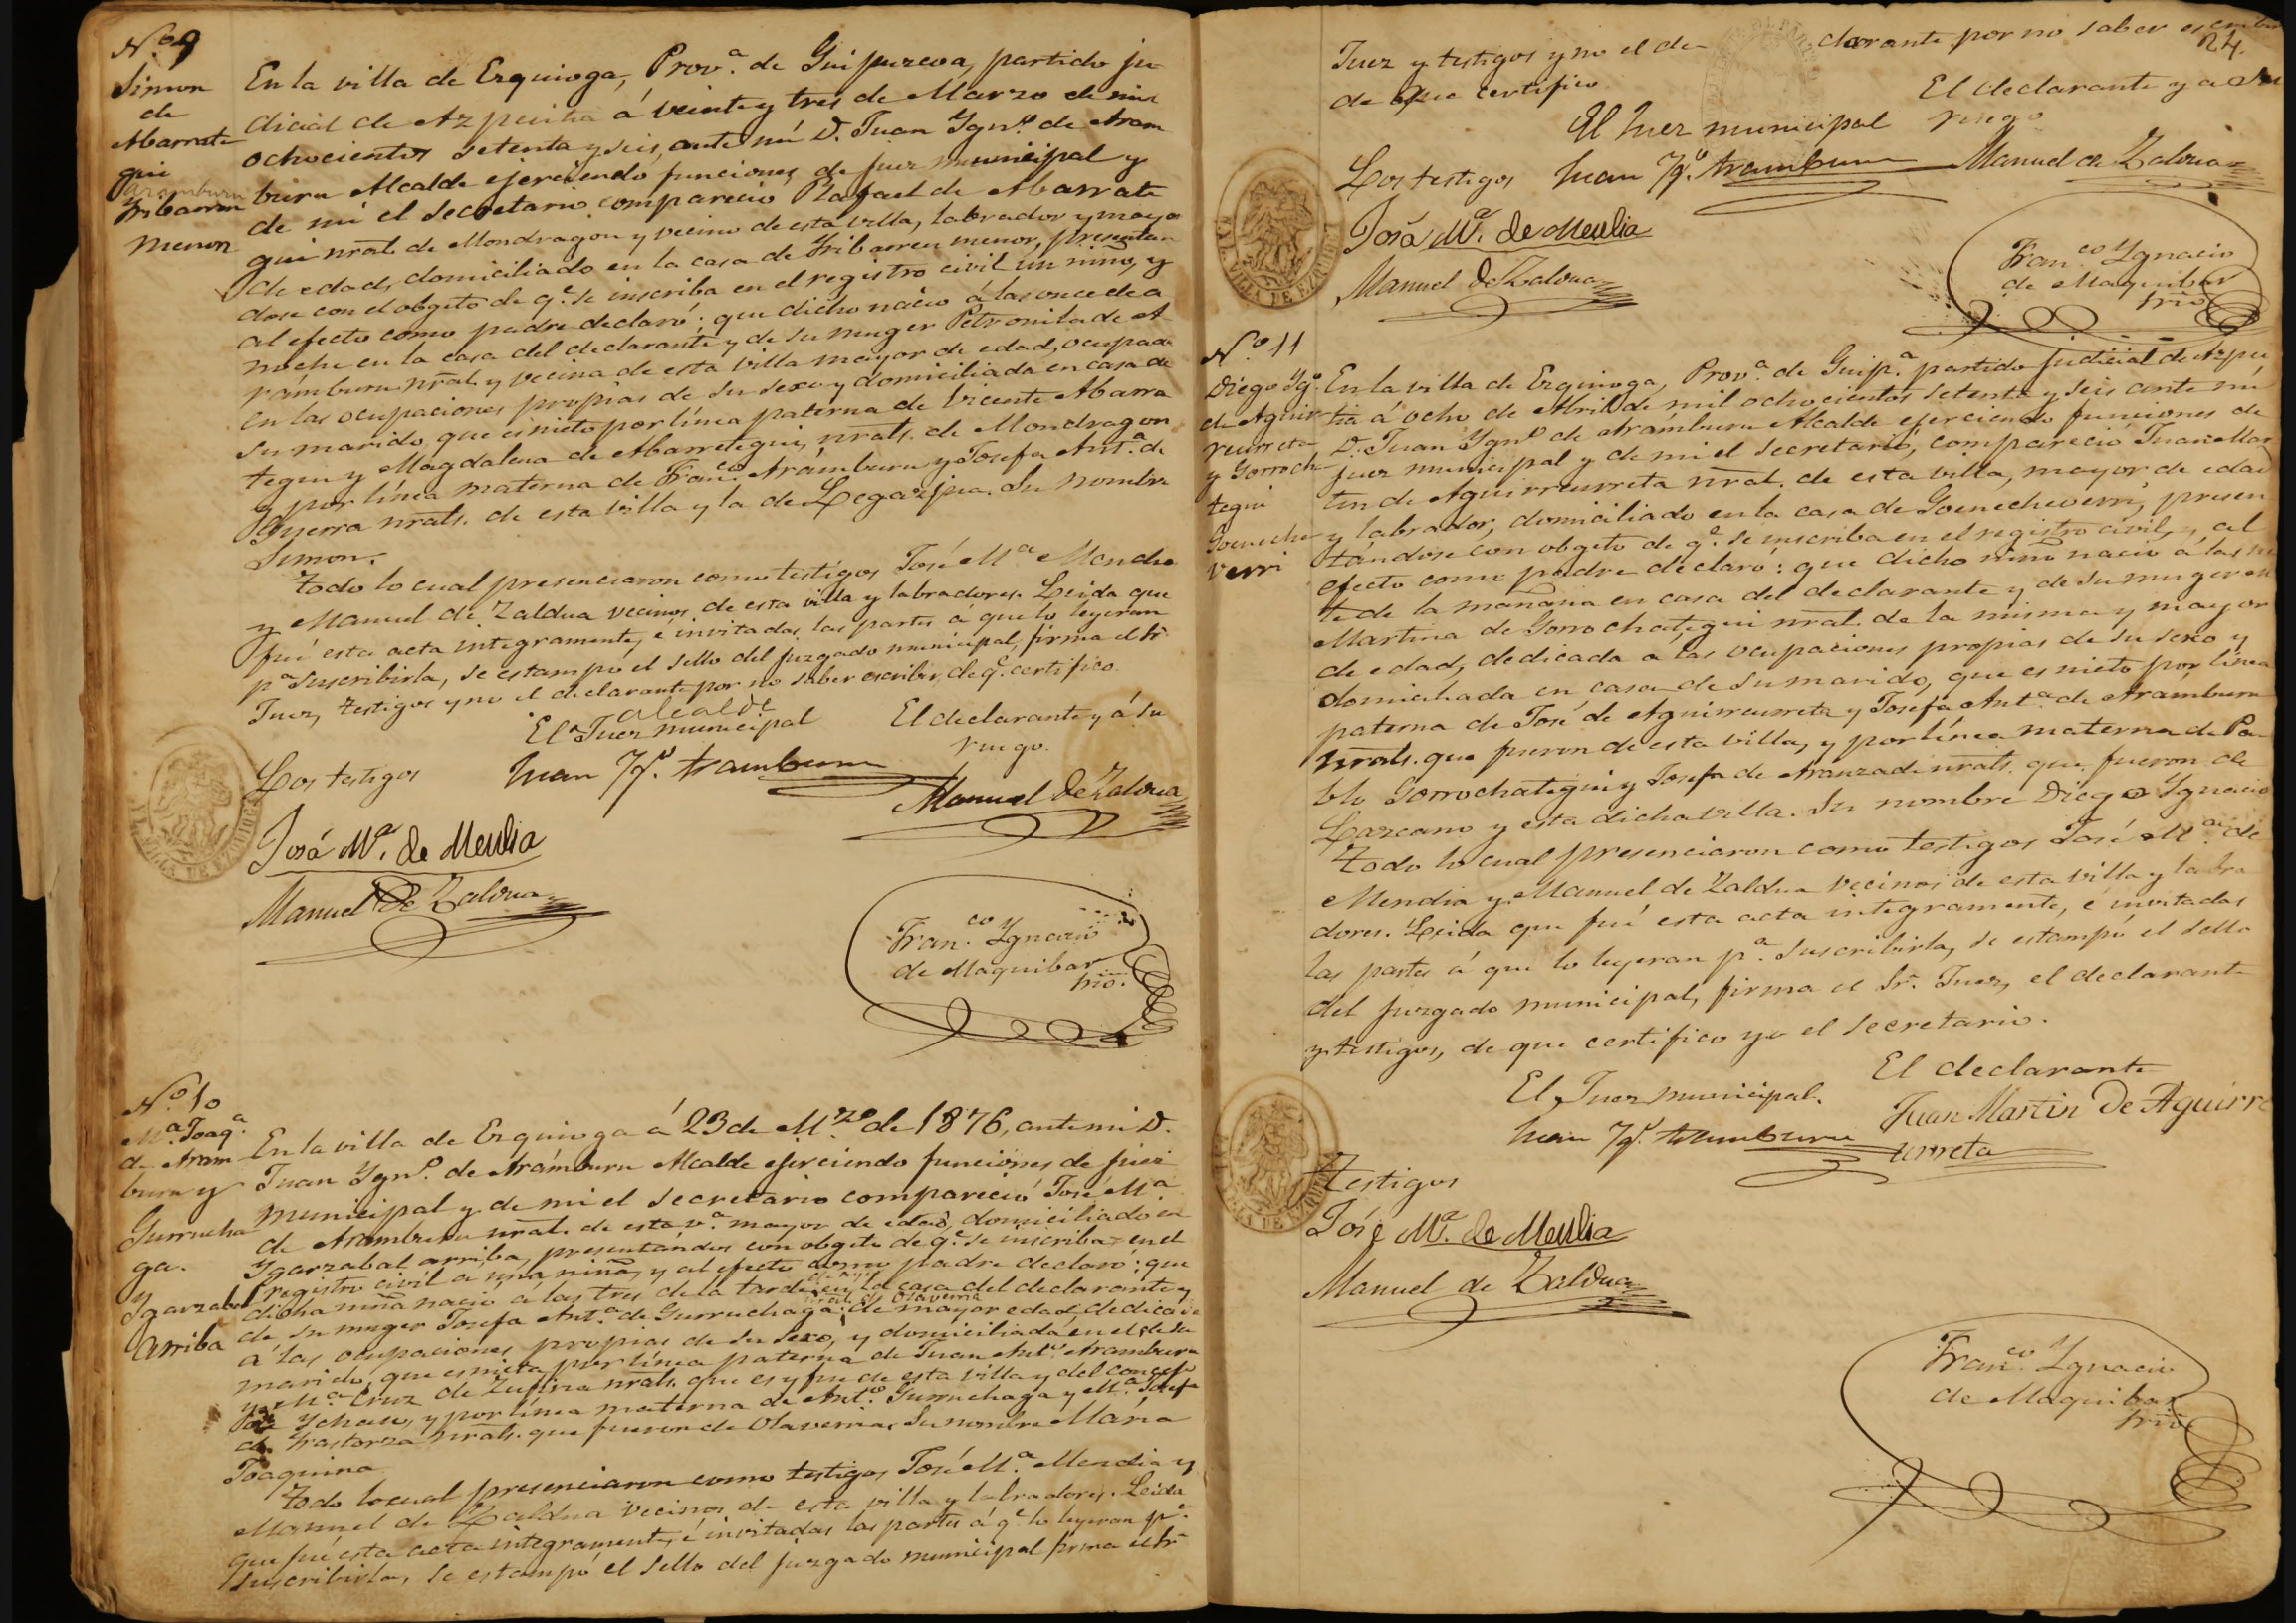 Nº 9
Simon
de
Abarrate
gui
Aramburu
Yribarren
menor
En la villa de Ezquioga, Prov.ª de Guipuzcoa, partido ju
dicial de Azpeitia á veinte y tres de Marzo de mil
ochocientos setenta y seis, ante mí D. Juan Ygn.º de Aram
buru Alcalde ejerciendo funciones de juez municipal y
de mí el secretario compareció Rafael de Abarrate
gui nral. de Mondragon y vecino de esta villa, labrador y mayor
de edad, domiciliado en la casa de Yribarren menor, presentan
dose con el obgeto de q.e se inscriba en el registro civil un niño, y
al efecto como padre declaró: que dicho nació á las once de a
noche en la casa del declarante y de su muger Petronila de A
rámburu nral. y vecina de esta villa mayor de edad, ocupada
en las ocupaciones propias de su sexo y domiciliada en casa de
su marido, que es nieto por línea paterna de Vicente Abarra
tegui y Magdalena de Abarretegui, nrals. de Mondragon
y por línea materna de Fran.co Arámburu y Josefa Ant.ª de
Gyerra nrals. de esta villa y la de Legazpia. Su nombre
Simon.
Todo lo cual presenciaron como testigos José M.ª Mendia
y Manuel de Zaldua vecinos de esta villa y labradores. Leida que
fué esta acta integramente, é invitadas las partes á que lo leyeran
p.ª suscribirla, se estampó el sello del juzgado municipal, firma el Sr.
Juez, testigos y no el declarante por no saber escribir, de q.e certifico.
alcalde
El Juez municipal
El declarante y á su
ruego.
Los testigos
Juan Yg.º Aramburu
Manuel De Zaldua
José M.ª de Mendia
Manuel De Zaldua
Fran.co Ygnacio
de Maquibar
Srio.
N.º 10
M.ª Joaq.ª
de Aram
buru y
Gurrucha
ga.
Y
Ygarzabal
Arriba
En la villa de Ezquioga á 23 de M.zo de 1876, ante mi D.
Juan Ygn.º de Arámburu Alcalde ejerciendo funciones de juez
municipal y de mi el secretario compareció José M.ª
de Aramburu nral. de esta v.ª mayor de edad, domiciliado en
Ygarzabal arriba, presentándose con obgeto de q.e se inscriba en el
registro civil a una niña, y al efecto como padre declaró: que
dicha niña nació á las tres de la tarde en la casa del declarante y
nral. de Olaverria
de su muger Josefa Ant.ª de Gurruchaga, de mayor edad, dedicada
á las ocupaciones propias de su sexo, y domiciliada en el de su
marido, que es nieta por línea paterna de Juan Ant.º Aramburu
y M.ª Cruz de Zufiria nrals. que es y fue de esta villa y del concejo
de Ychaso, y por línea materna de Ant.º Gurruchaga y M.ª Josefa
de Yrastorza nrals. que fueron de Olaverria. Su nombre María
Joaquina
Todo lo cual presenciaron como testigos José M.ª Mendia y
Manuel de Zaldua vecinos de esta villa y labradores. Leida
que fué esta acta integramente, é invitadas las partes á q.e lo leyeran p.ª
suscribirla, se estampó el sello del juzgado municipal firma el Sr.
24.
Juez y testigos y no el declarante por no saber escribir
de que certifico
El declarante y a su
ruego
El Juez municipal
Los testigos
Juan Yg.º Aramburu
Manuel de Zaldua
José M.ª de Mendia
Manuel De Zaldua
Fran.co Ygnacio
de Maquibar
Srio
N.º 11
Diego Yg.º
de Aguir
reurreta
y Gorrocha
tegui
Goeneche
verri
En la villa de Ezquioga, Prov.ª de Guip.ª partido judicial de Azpei
tia á ocho de Abril de mil ochocientos setenta y seis ante mí
D. Juan Ygn.º de Arámburu Alcalde ejerciendo funciones de
juez municipal y de mí el secretario, compareció Juan Mar
tin de Aguirreurreta nral. de esta villa, mayor de edad
y labrador, domiciliado en la casa de Goenecheverri, presen
tándose con obgeto de q.e se inscriba en el registro civil, y al
efecto como padre declaró: que dicho niño nació á las sie
te de la mañana en casa del declarante y de su muger
Martina de Gorrochategui nral. de la misma y mayor
de edad, dedicada a las ocupaciones propias de su sexo y
domiciliada en casa de su marido, que es nieto por línea
paterna de José de Aguirreurreta y Josefa Ant.ª de Arámburu
nrals. que fueron de esta villa, y por línea materna de Pa
blo Gorrochategui y Josefa de Aranzadi nrals. que fueron de
Lazcano y esta dicha villa. Su nombre Diego Ygnacio
Todo lo cual presenciaron como testigos José M.ª de
Mendia y Manuel de Zaldua vecinos de esta villa y labra
dores. Leida que fué esta acta integramente, é invitadas
las partes á que lo leyeran p.ª suscribirla, se estampó el sello
del juzgado municipal, firma el Sr. Juez, el declarante
y testigos, de que certifico yo el secretario.
El declarante
El Juez municipal.
Juan Martin De Aguirre
urreta
Juan Yg.º Aramburu
Testigos
José M.ª de Mendia
Manuel de Zaldua
Fran.co Ygnacio
de Maquibar
Srio